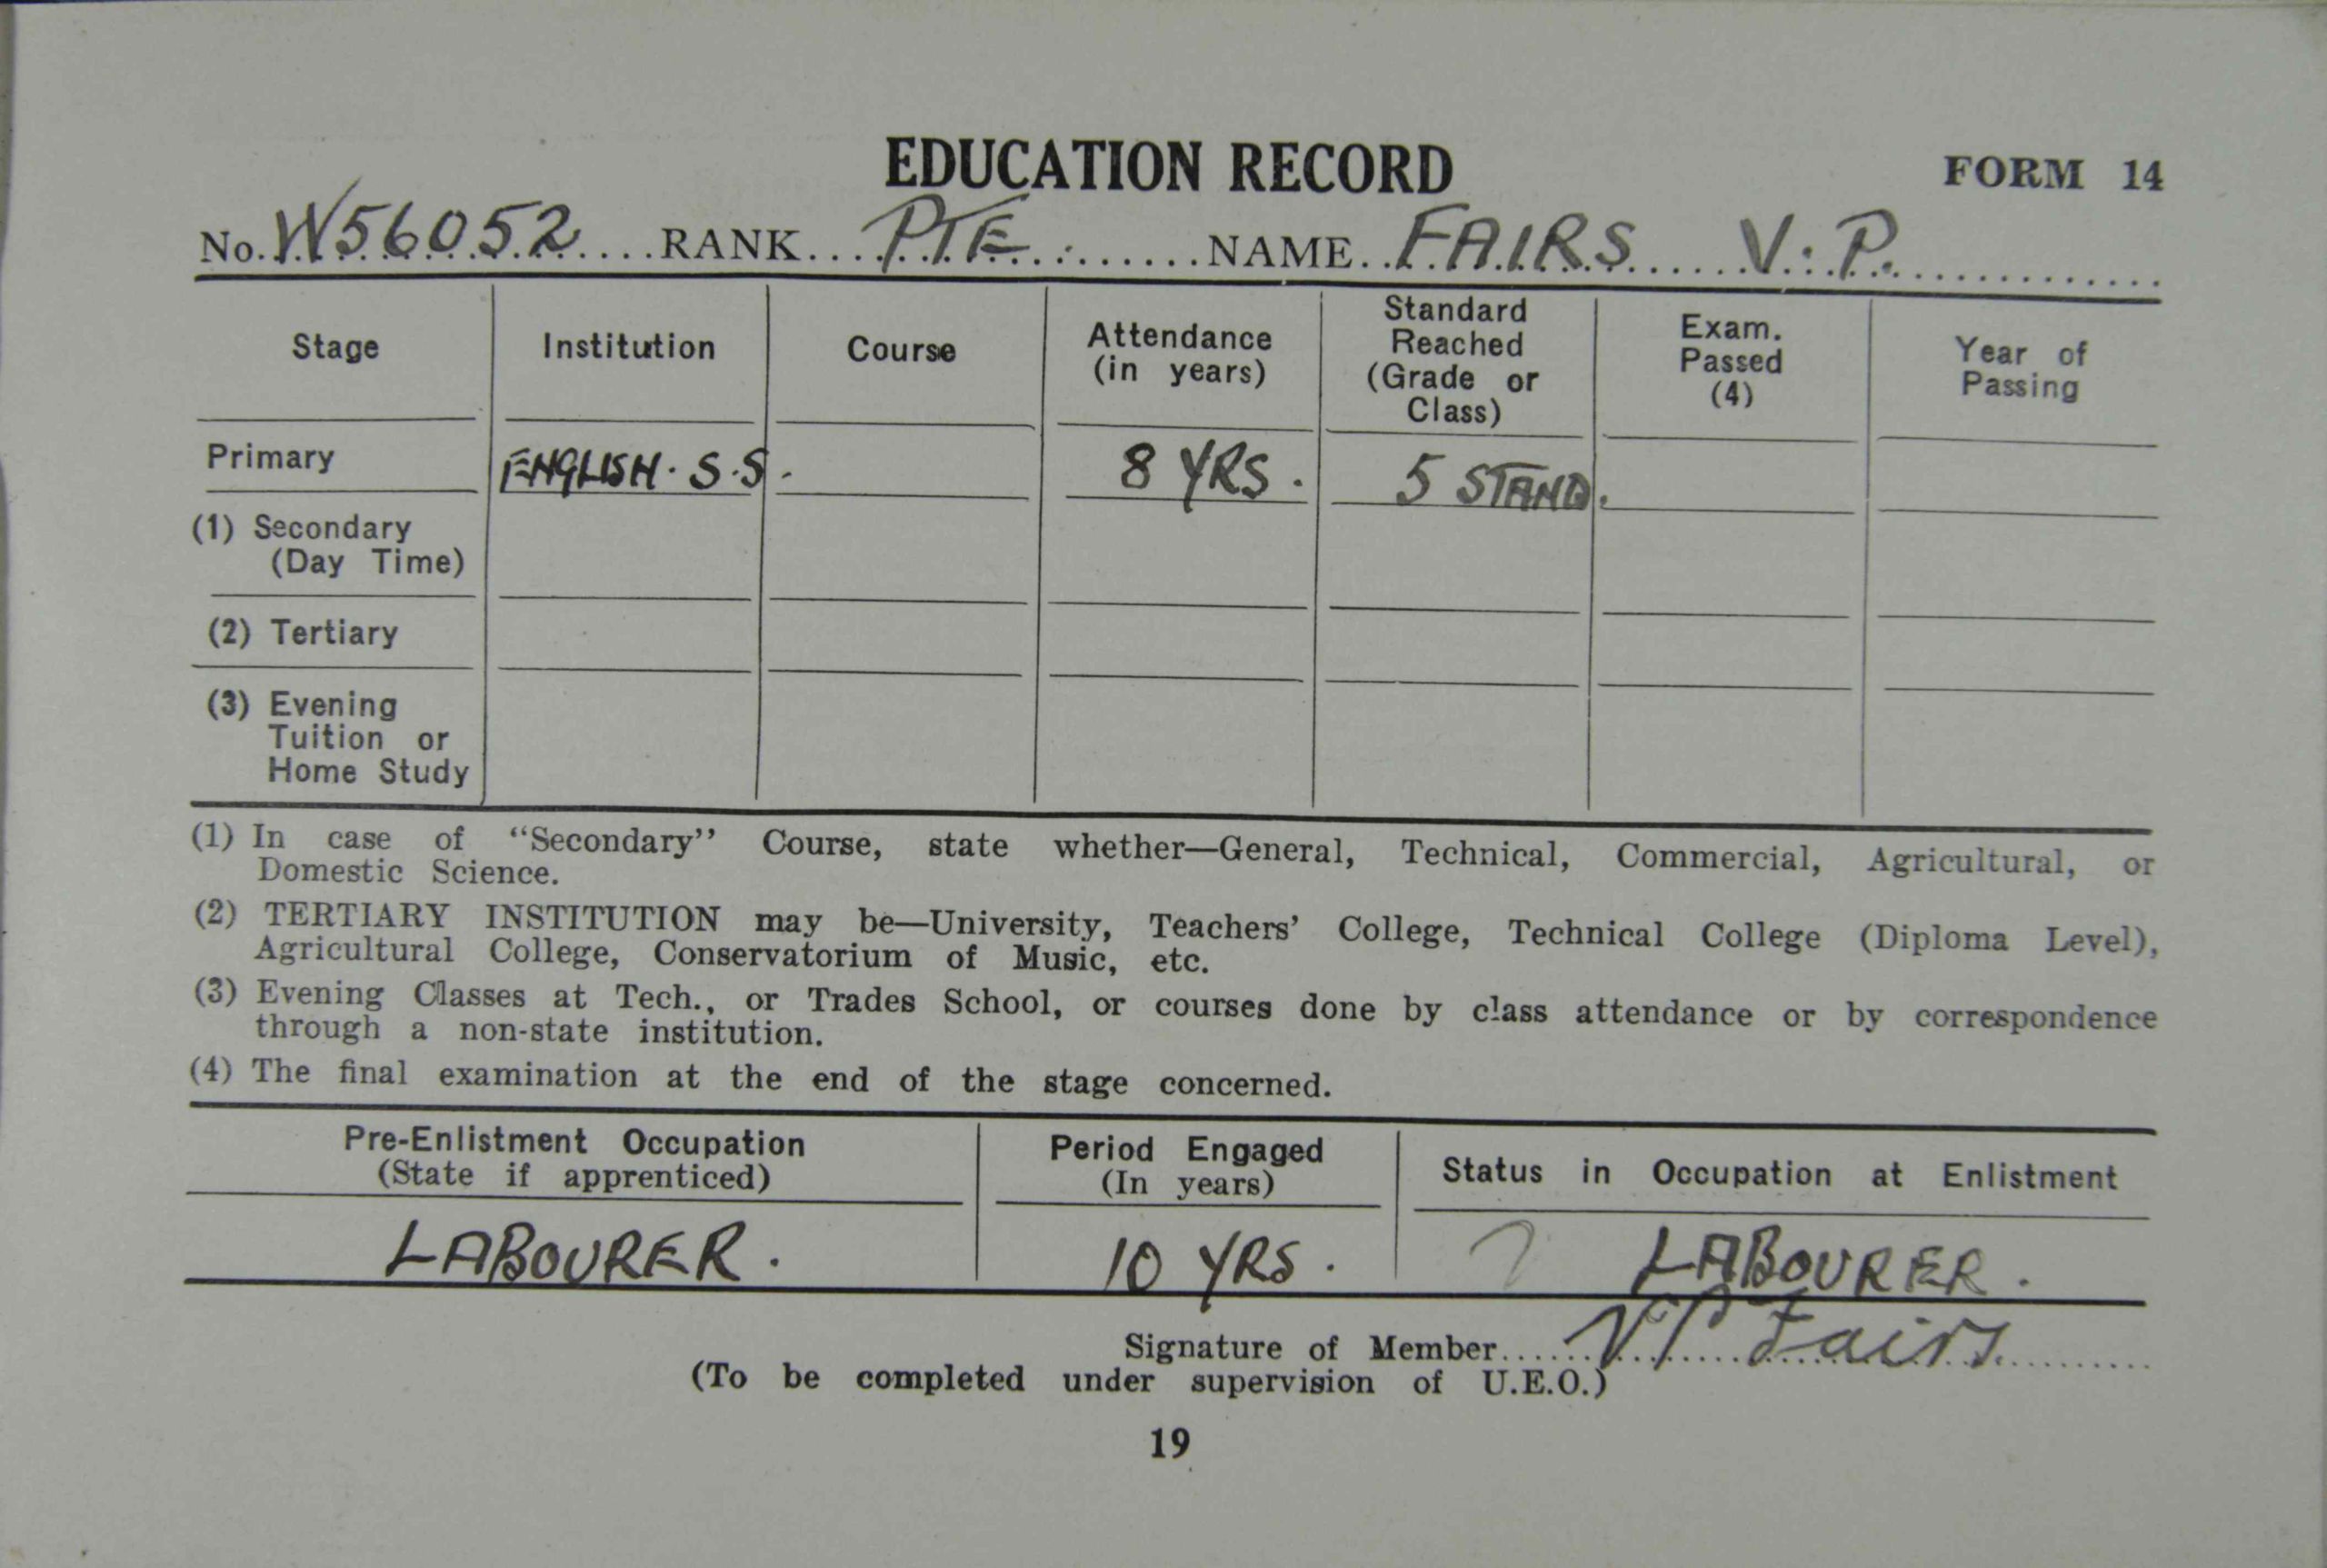 EDUCATION RECORD
FORM 14
No. W56052 RANK PTE NAME FAIRS V. P.
Stage Institution Course Attendance (in years) Standard Reached (Grade or Class) Exam. Passed (4) Year of Passing
Primary ENGLISH. S.S. 8 YRS. 5 STAND.
(1) Secondary
(Day Time)
(2) Tertiary
(3) Evening
Tuition or
Home Study
(1) In case of “Secondary” Course, state whether—General, Technical, Commercial, Agricultural, or
Domestic Science.
(2) TERTIARY INSTITUTION may be—University, Teachers’ College, Technical College (Diploma Level),
Agricultural College, Conservatorium of Music, etc.
(3) Evening Classes at Tech., or Trades School, or courses done by class attendance or by correspondence
through a non-state institution.
(4) The final examination at the end of the stage concerned.
Pre-Enlistment Occupation (State if apprenticed) Period Engaged (In years) Status in Occupation at Enlistment
LABOURER. 10 YRS. ? LABOURER.
Signature of Member VP Fairs
(To be completed under supervision of U.E.O.)
19